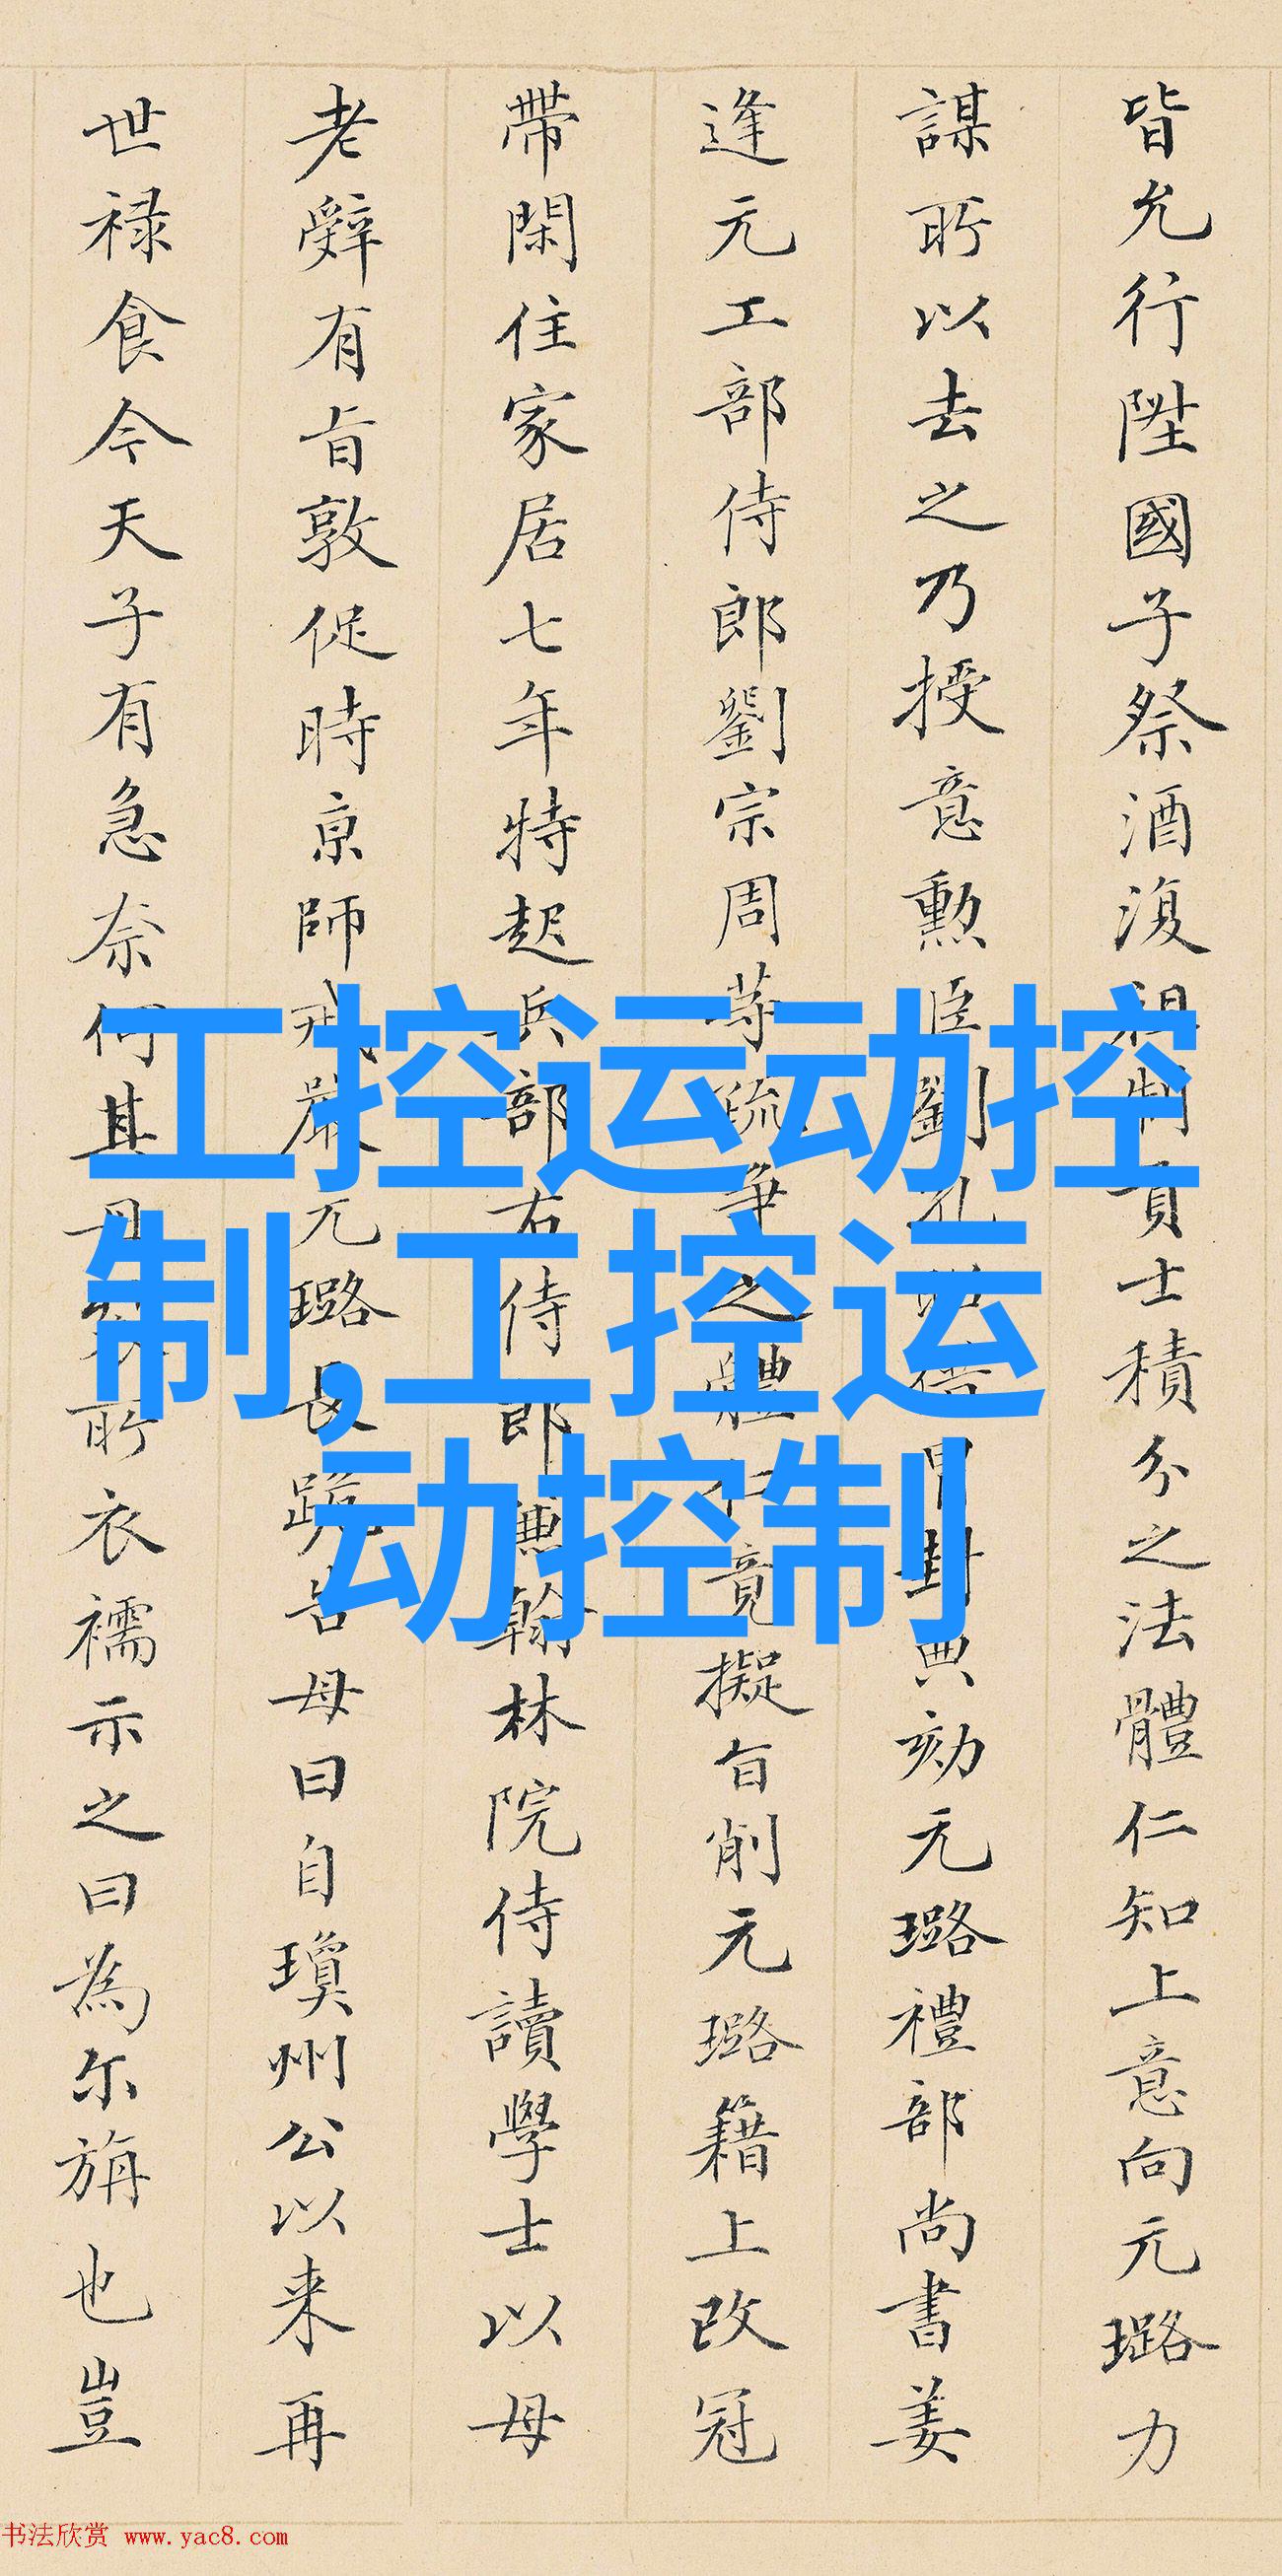 皆允行陞國子祭酒復祖制貢士積分之法體仁知上意向元璐力
謀所以去之乃授意勲臣劉孔封典劾元璐禮部尚書姜
逢元工部侍郎劉宗周等疏争之體仁竟擬旨削元璐籍上改冠
帶閑住家居七年特起兵部右侍郎兼翰林院侍讀學士以母
老辭有旨敦促時京師戒嚴元璐長跪告母曰自瓊州公以来再
世禄食今天子有急奈何其母所衣襦示之曰為尔旃也豈
工控运动控
制,工控运
动控制
书法欣赏 www.yac8.com